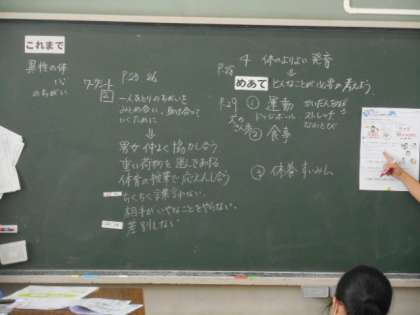 これまで
異性の体
心
のちがい
ワークシート
P.25. 26
2
一人ひとりのちがいを
みとめ合い、助け合って
いくために
⇓
男女 仲よく 協力し合う
重い荷物を運んであげる
体育の授業で応えんし合う
ちくちく言葉を言わない。
相手がいやなことをやらない。
差別しない
4 体のよりよい 発育
P.28
⇓
めあて
どんなことが必要か考えよう
P.29
① 運動
ドッジボール
ストレッチ
なわとび
② 食事
③ 休養・すいみん